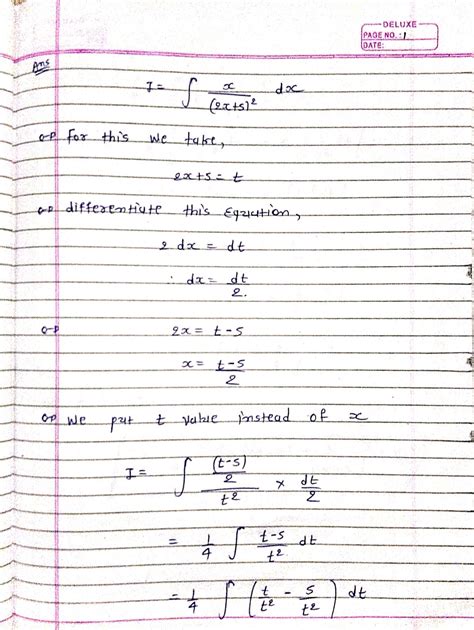 DELUXE
PAGE NO.: 1
DATE:
Ans
I = ∫ x/(2x+5)² dx
for this we take,
2x+5 = t
differentiate this Equation,
2 dx = dt
∴ dx = dt/2.
2x = t-5
x = t-5/2
We put t value instead of x
I = ∫ (t-5)/2/t² × dt/2
= 1/4 ∫ t-5/t² dt
= 1/4 ∫ (t/t² - 5/t²) dt